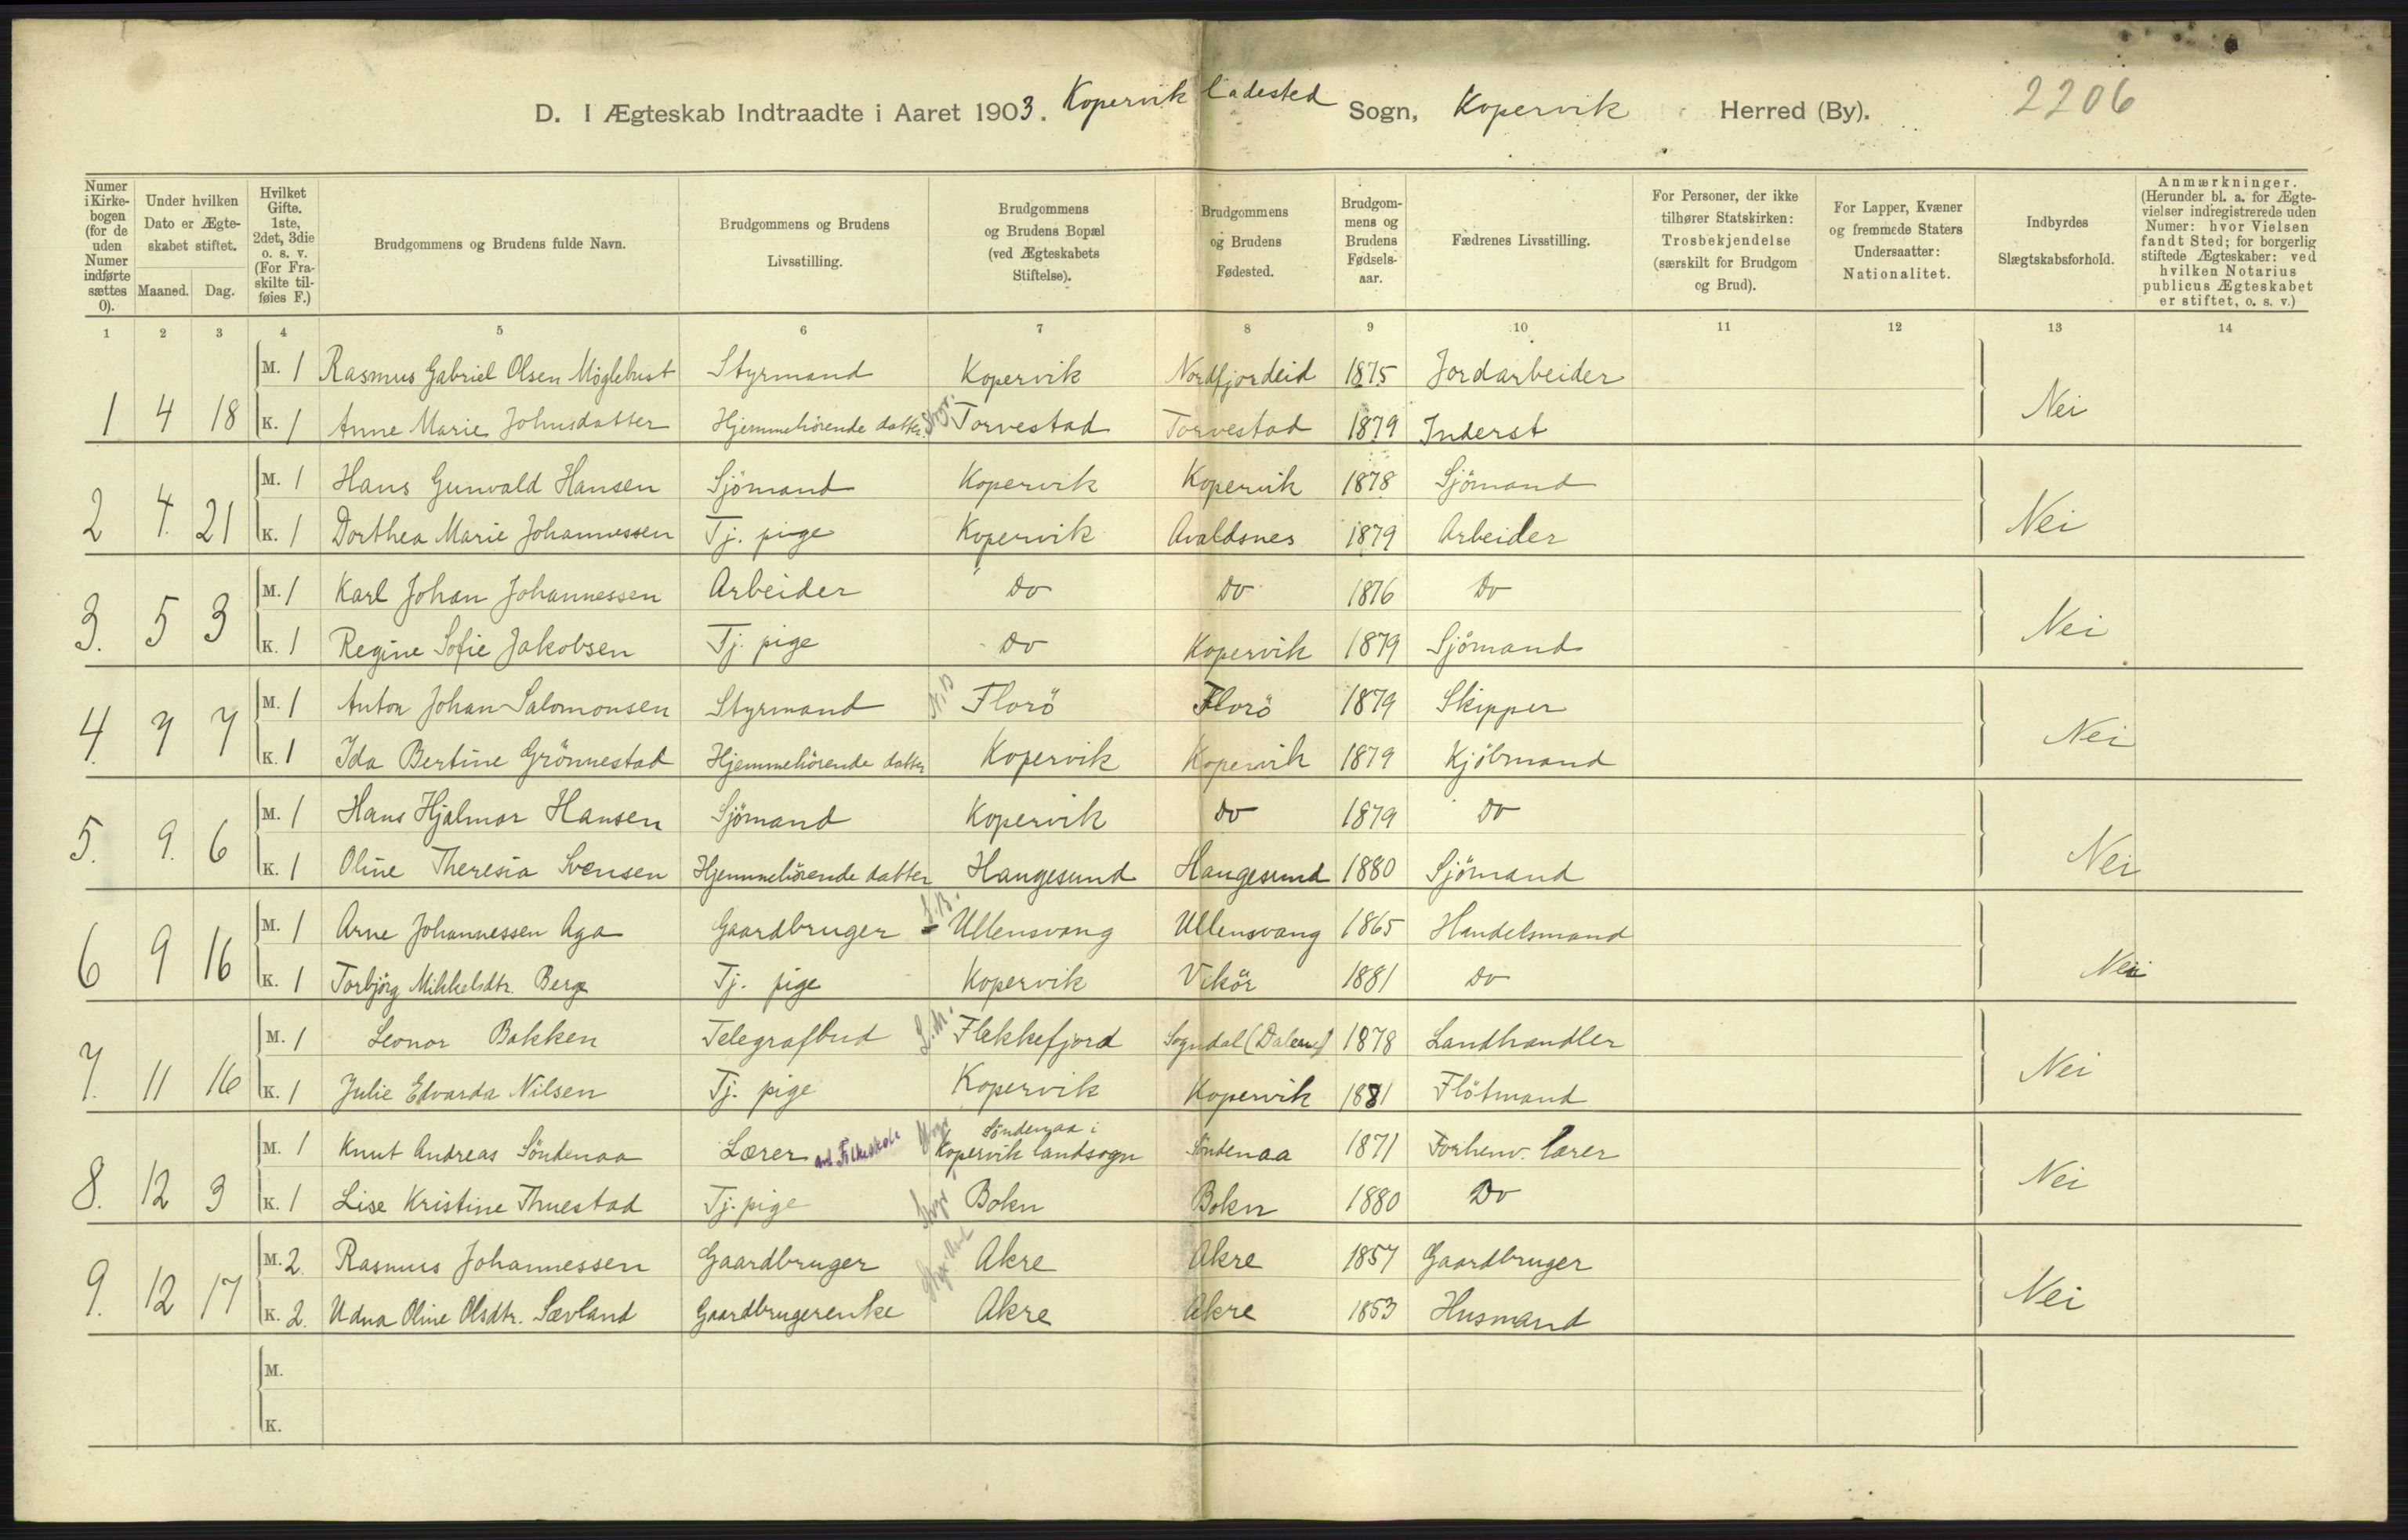 D. I Ægteskab Indtraadte i Aaret 1903. Kopervik ladested Sogn, Kopervik Herred (By). 2206
Numer i Kirkebogen (for de uden Numer indførte sættes 0). | Under hvilken Dato er Ægteskabet stiftet. Maaned. Dag. | Hvilket Gifte. 1ste, 2det, 3die o. s. v. (For Fraskilte tilføies F.) | Brudgommens og Brudens fulde Navn. | Brudgommens og Brudens Livsstilling. | Brudgommens og Brudens Bopæl (ved Ægteskabets Stiftelse). | Brudgommens og Brudens Fødested. | Brudgommens og Brudens Fødselsaar. | Fædrenes Livsstilling. | For Personer, der ikke tilhører Statskirken: Trosbekjendelse (særskilt for Brudgom og Brud). | For Lapper, Kvæner og fremmede Staters Undersaatter: Nationalitet. | Indbyrdes Slægtskabsforhold. | Anmærkninger. (Herunder bl. a. for Ægtevielser indregistrerede uden Numer: hvor Vielsen fandt Sted; for borgerlig stiftede Ægteskaber: ved hvilken Notarius publicus Ægteskabet er stiftet, o. s. v.)
1 2 3 4 5 6 7 8 9 10 11 12 13 14
M. 1 Rasmus Gabriel Olsen Møglebust Styrmand Kopervik Nordfjordeid 1875 Jordarbeider
1 4 18 K. 1 Anne Marie Johnsdatter Hjemmehörende datter Torvestad Torvestad 1879 Inderst Nei
M. 1 Hans Gunvald Hansen Sjömand Kopervik Kopervik 1878 Sjömand
2 4. 21 K. 1 Dorthea Marie Johannessen Tj. pige Kopervik Avaldsnes 1879 Arbeider Nei
M. 1 Karl Johan Johannessen Arbeider Do Do 1876 Do
3. 5 3 K. 1 Regine Sofie Jakobsen Tj. pige Do Kopervik 1879 Sjömand Nei
M. 1 Anton Johan Salomonsen Styrmand Florö Florö 1879 Skipper
4. 7 7 K. 1 Ida Bertine Grönnestad Hjemmehörende datter Kopervik Kopervik 1879 Kjöbmand Nei
M. 1 Hans Hjalmar Hansen Sjömand Kopervik Do 1879 Do
5. 9. 6 K. 1 Oline Theresia Svensen Hjemmehörende datter Haugesund Haugesund 1880 Sjömand Nei
M. 1 Arne Johannessen Aga Gaardbruger S.B. Ullensvang Ullensvang 1865 Handelsmand
6 9 16 K. 1 Torbjörg Mikkelsdtr. Berge Tj. pige Kopervik Vikör 1881 Do Nei
M. 1 Leonor Bakken Telegrafbud L.M. Flekkefjord Sogndal (Dalerne) 1878 Landhandler
7. 11 16 K. 1 Julie Edvarda Nilsen Tj. pige Kopervik Kopervik 1881 Flötmand Nei
M. 1 Knut Andreas Söndenaa Lærer ved Folkeskole Söndenaa i Kopervik landsogn Söndenaa 1871 Forhenv. lærer
8. 12 3 K. 1 Lise Kristine Thuestad Tj. pige Bokn Bokn 1880 Do Nei
M. 2. Rasmus Johannessen Gaardbruger Akre Akre 1857 Gaardbruger
9. 12 17 K. 2. Udna Oline Olsdtr. Sævland Gaardbrugerenke Akre Akre 1853 Husmand Nei
M.
K.